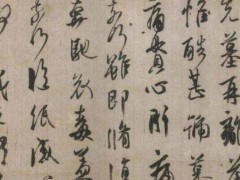 先墓再離荼
惟酷甚號慕
痛貫心肝痛
奈何雖即脩復
奔馳哀毒益
奈何臨紙感